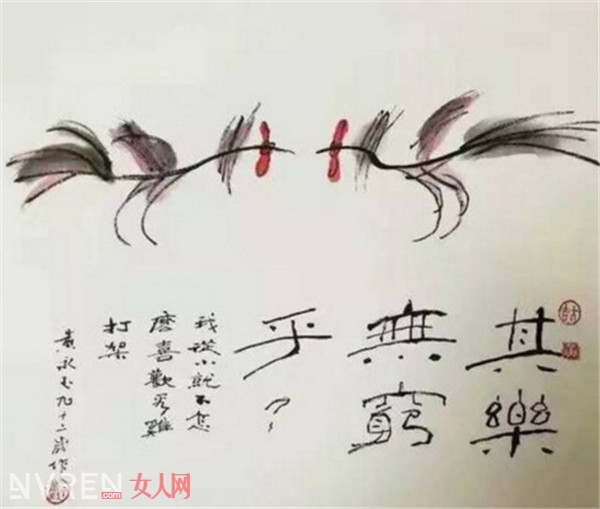 其樂
無窮
乎??
我從小就不怎
麼喜歡看雞
打架
黃永玉九十二歲作
NVREN女人网